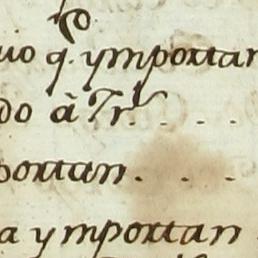 uio q. ymportan
do à Trl. . . .
portan. . . .
a ymportan